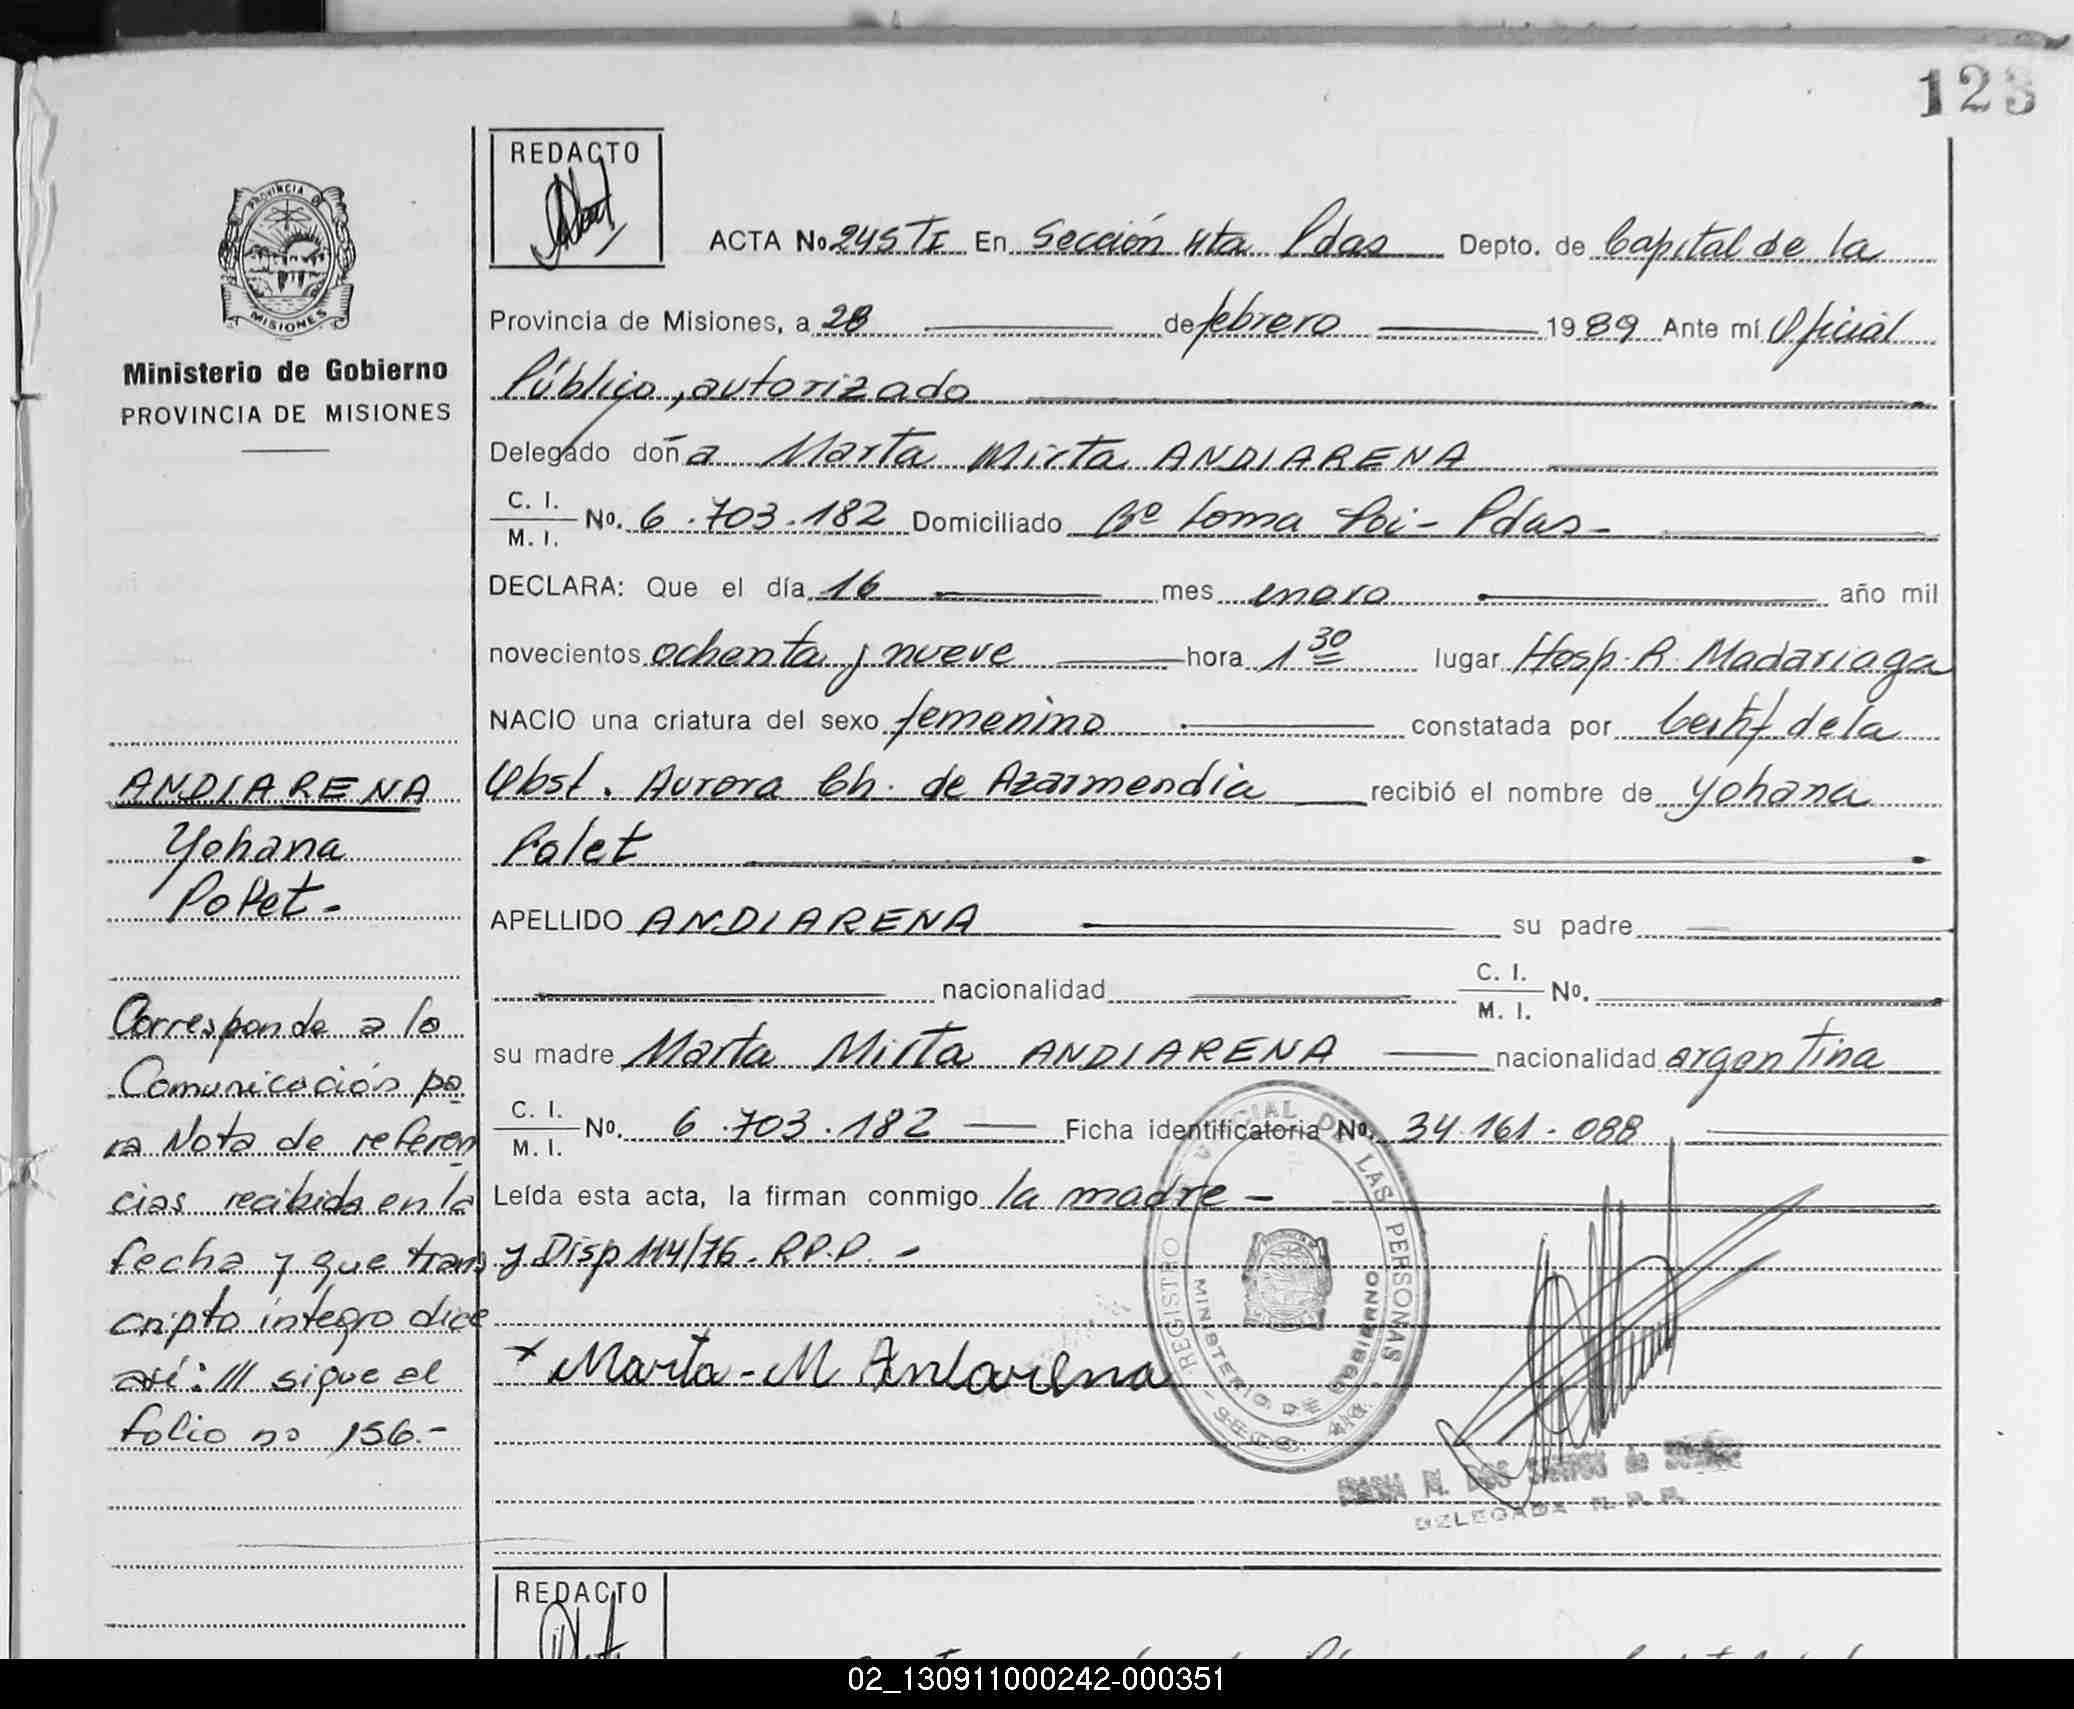 123
REDACTO
PROVINCIA DE
MISIONES
Ministerio de Gobierno
PROVINCIA DE MISIONES
ACTA No 245 TI En Sección 4ta Pdas Depto. de Capital de la
Provincia de Misiones, a 28 de febrero 1989 Ante mí Oficial
Público, autorizado
Delegado doña Marta Mirta ANDIARENA
C. I.
M. I. No. 6.703.182 Domiciliado Bº Loma Poi - Pdas -
DECLARA: Que el día 16 mes enero año mil
novecientos ochenta y nueve hora 1 30 lugar Hosp. R. Madariaga
NACIO una criatura del sexo femenino constatada por Certif de la
Obst. Aurora Ch. de Azarmendia recibió el nombre de Yohana
Polet
APELLIDO ANDIARENA su padre
nacionalidad C. I.
M. I. No.
su madre Marta Mirta ANDIARENA nacionalidad argentina
C. I.
M. I. No. 6.703.182 Ficha identificatoria No. 34.161.088
Leída esta acta, la firman conmigo la madre -
y Disp 114/76. R.P.P. -
x Marta - M Andarena
REGISTRO PROVINCIAL DE LAS PERSONAS
MINISTERIO DE GOBIERNO
M. DOS SANTOS de
DELEGADA R. P. P.
ANDIARENA
Yohana
Polet -
Corresponde a la
Comunicación pa
ra Nota de referen
cias recibida en la
fecha y que trans
cripto íntegro dice
así: /// sigue el
folio nº 156.-
REDACTO
02_130911000242-000351